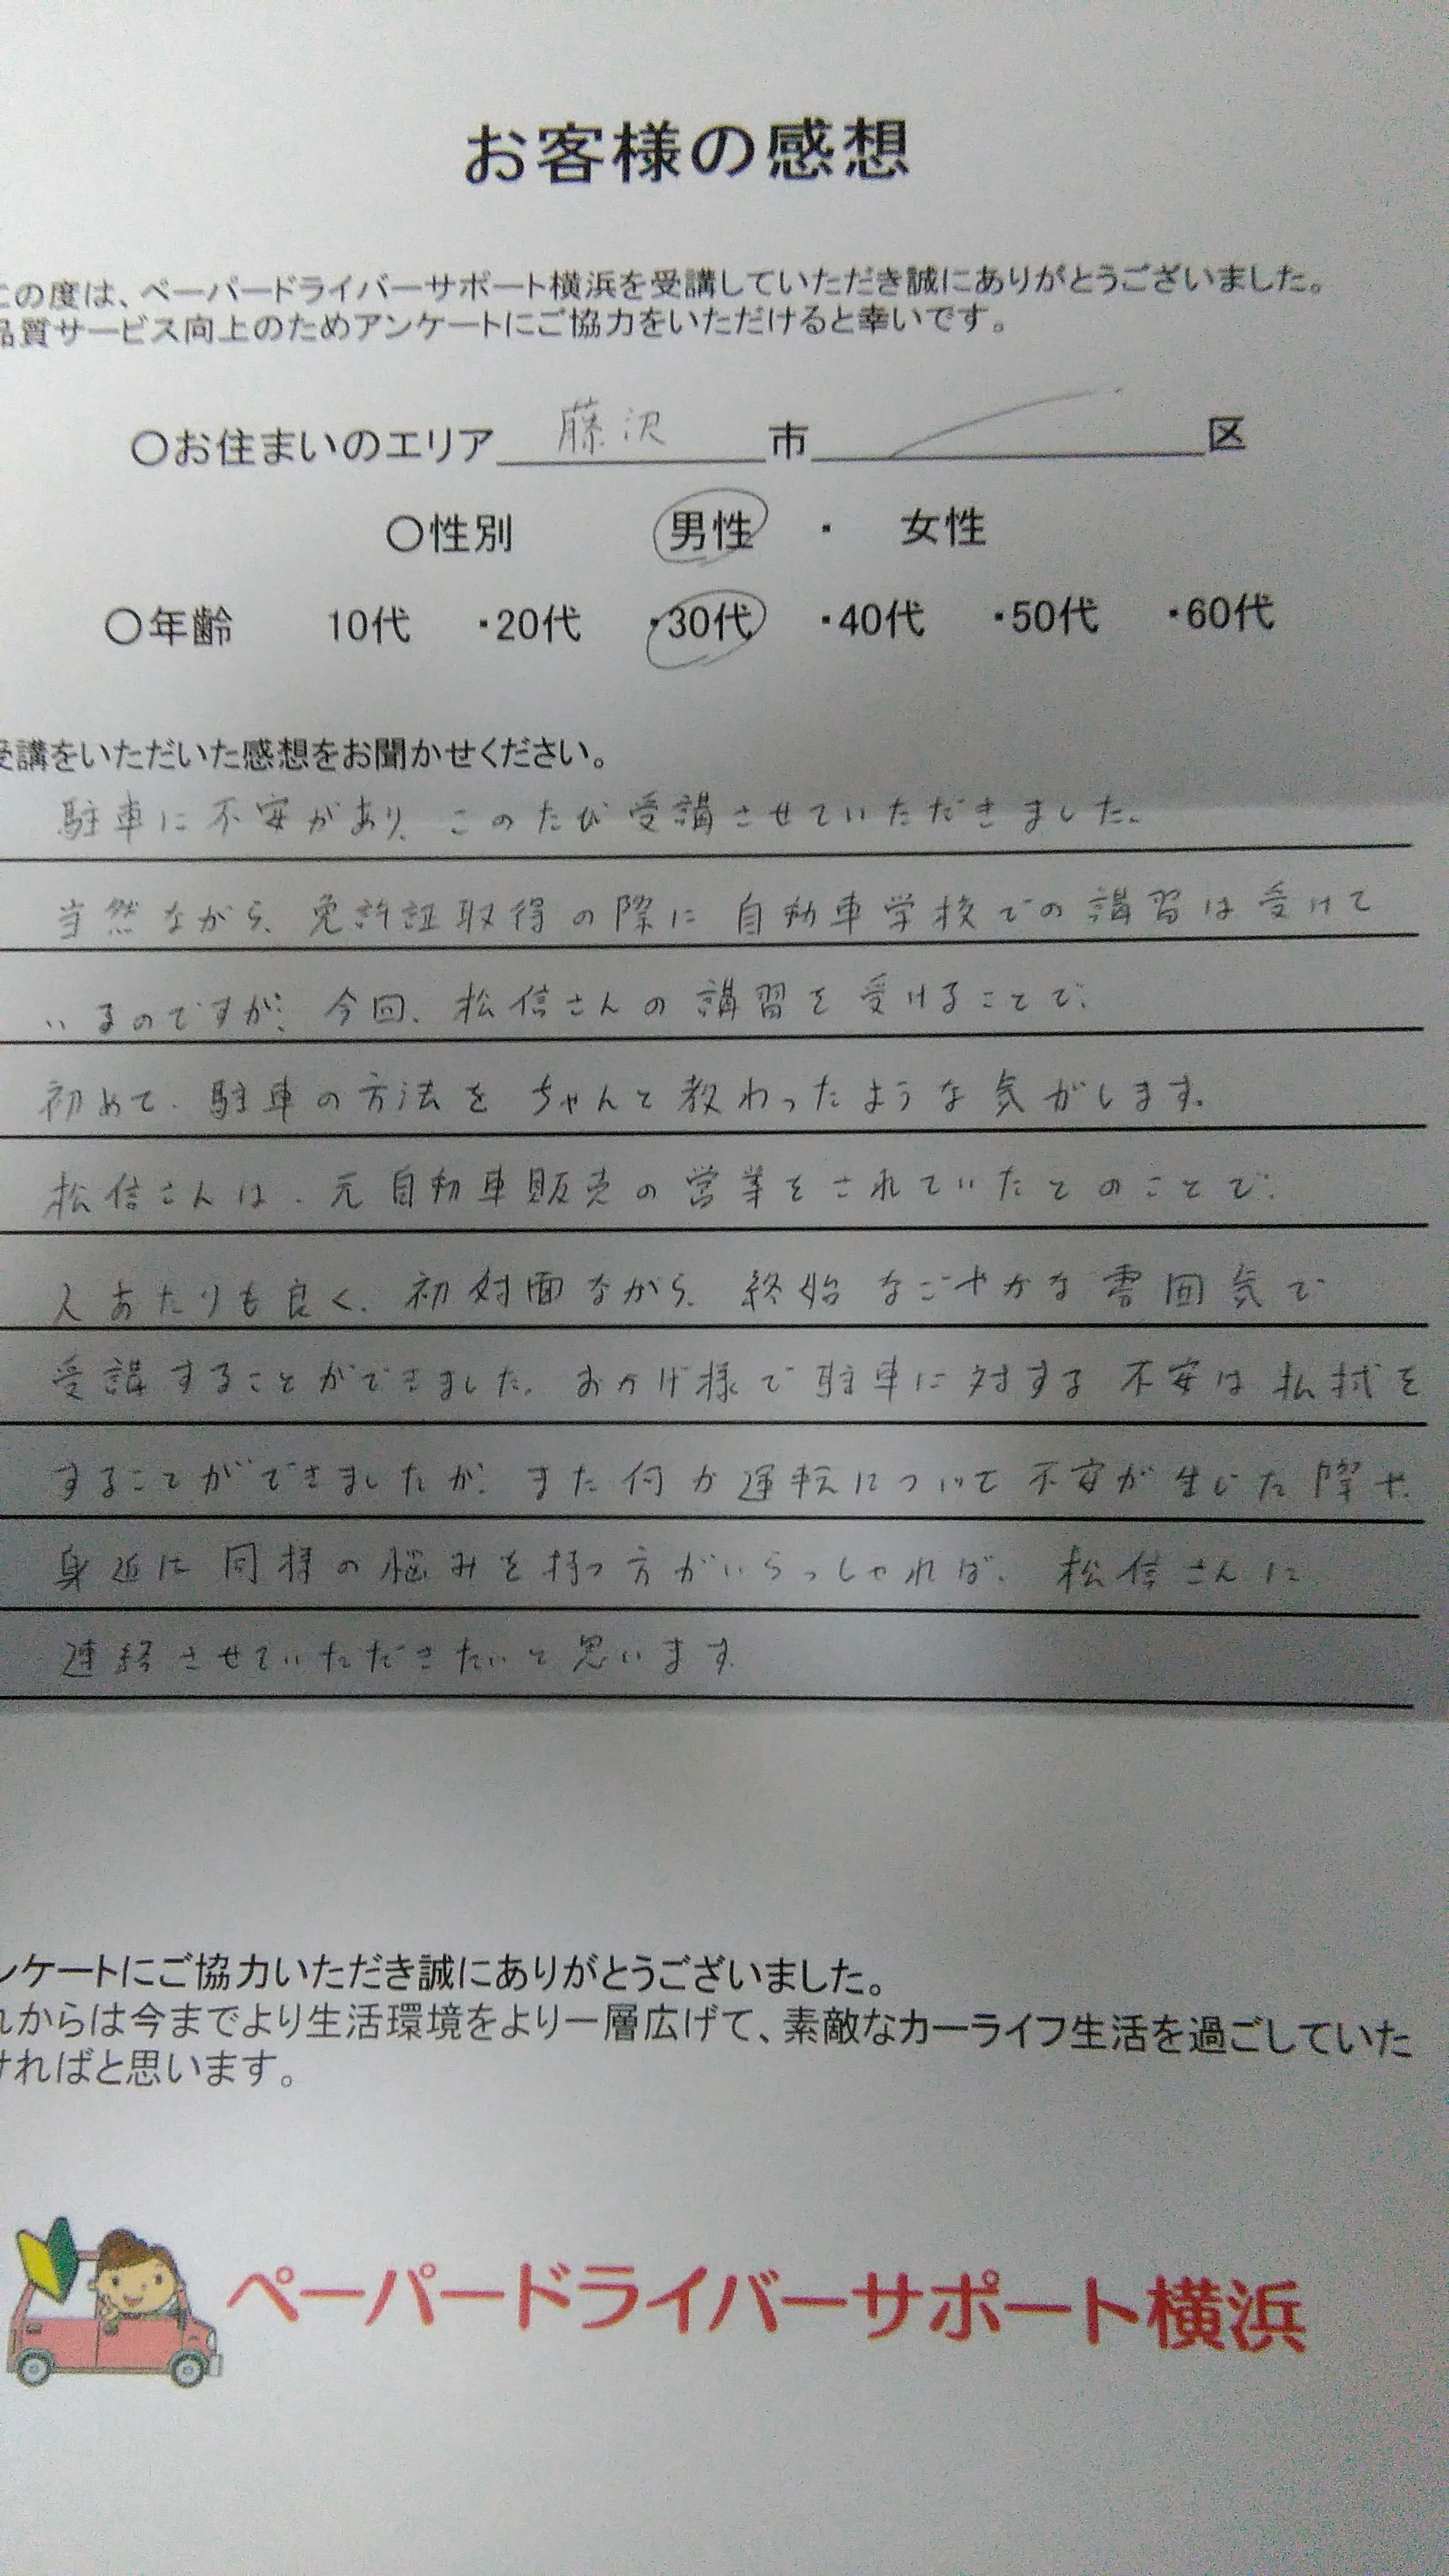 お客様の感想
この度は、ペーパードライバーサポート横浜を受講していただき誠にありがとうございました。
品質サービス向上のためアンケートにご協力をいただけると幸いです。
○お住まいのエリア 藤沢 市 区
○性別 男性 ・ 女性
○年齢 10代 ・20代 ・30代 ・40代 ・50代 ・60代
受講をいただいた感想をお聞かせください。
駐車に不安があり、このたび受講させていただきました。
当然ながら、免許証取得の際に自動車学校での講習は受けて
いるのですが、今回、松信さんの講習を受けることで、
初めて、駐車の方法をちゃんと教わったような気がします。
松信さんは、元自動車販売の営業をされていたとのことで、
人あたりも良く、初対面ながら、終始なごやかな雰囲気で
受講することができました。おかげ様で駐車に対する不安は払拭を
することができましたが、また何か運転について不安が生じた際や、
身近に同様の悩みを持つ方がいらっしゃれば、松信さんに
連絡させていただきたいと思います。
ンケートにご協力いただき誠にありがとうございました。
れからは今までより生活環境をより一層広げて、素敵なカーライフ生活を過ごしていた
ければと思います。
ペーパードライバーサポート横浜